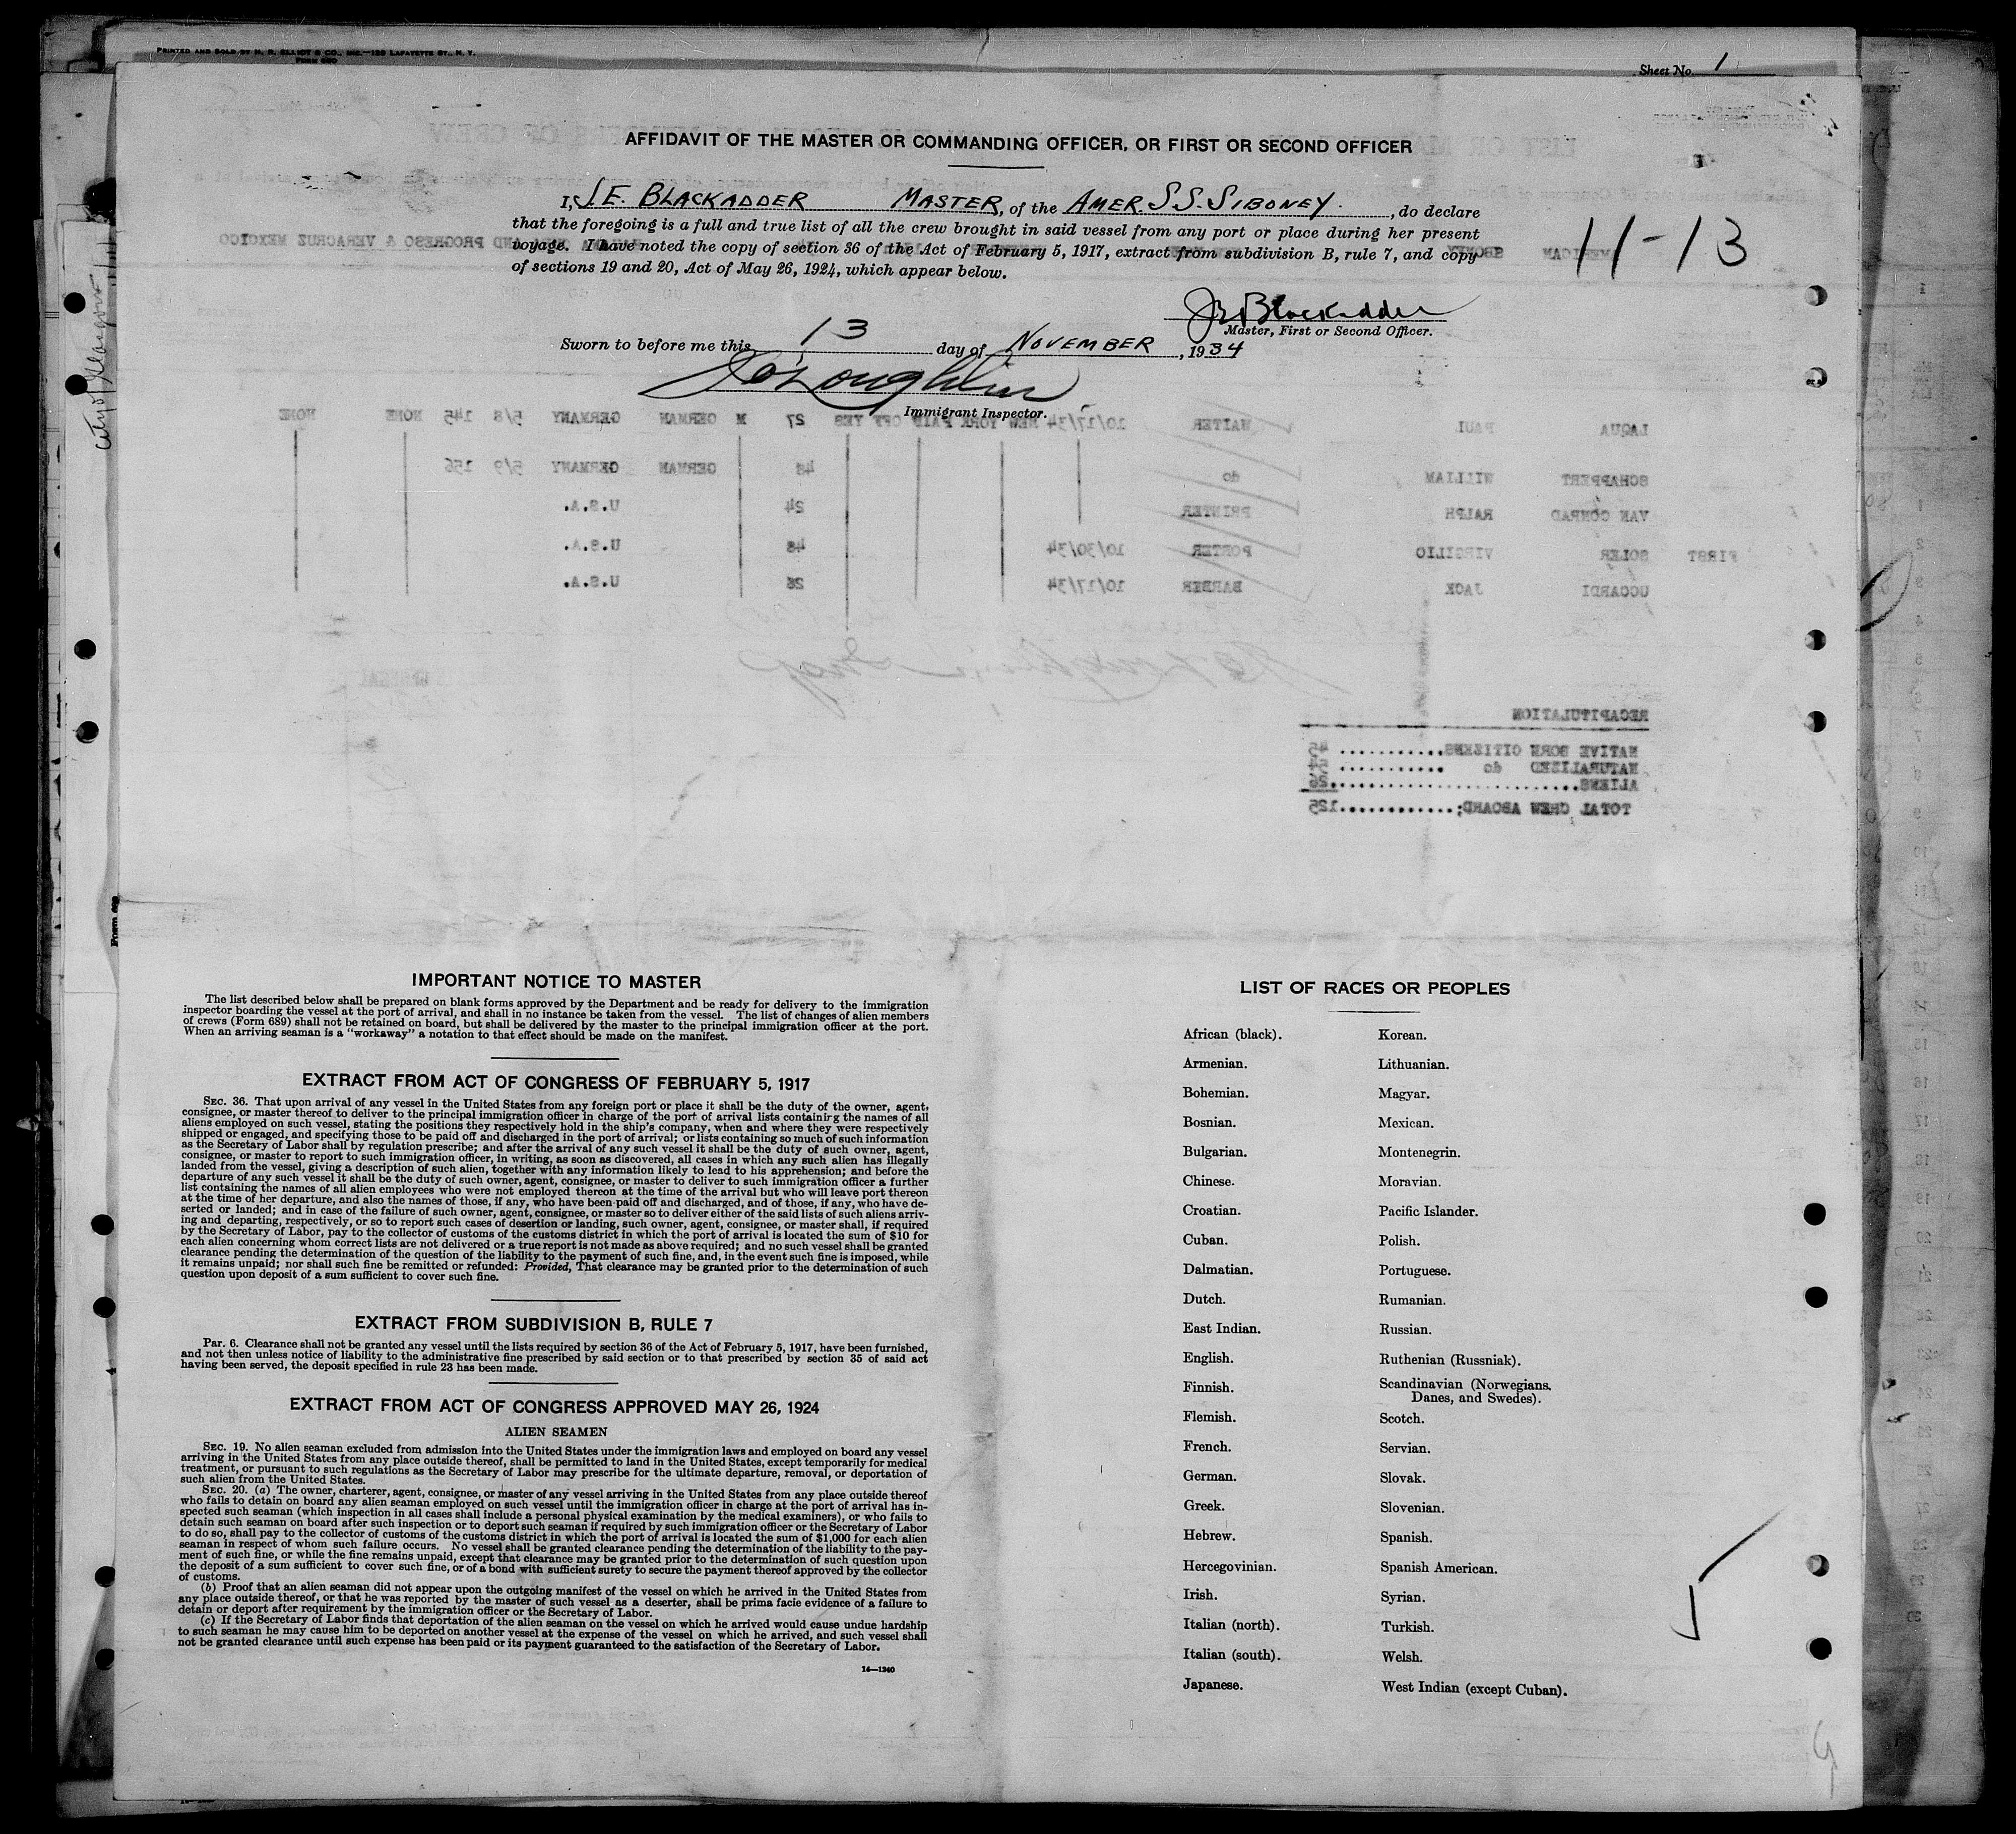 PRINTED AND SOLD BY M. B. ELLIOT & CO., INC.—129 LAFAYETTE ST., N. Y.
FORM 680
Sheet No. 1
AFFIDAVIT OF THE MASTER OR COMMANDING OFFICER, OR FIRST OR SECOND OFFICER
I, J.E. BLACKADDER MASTER, of the AMER. S.S. SIBONEY, do declare
that the foregoing is a full and true list of all the crew brought in said vessel from any port or place during her present
voyage. I have noted the copy of section 36 of the Act of February 5, 1917, extract from subdivision B, rule 7, and copy
of sections 19 and 20, Act of May 26, 1924, which appear below.
11-13
JE Blackadder
Master, First or Second Officer.
Sworn to before me this 13 day of NOVEMBER, 1934
Immigrant Inspector.
LAQUA PAUL WAITER 10/17/34 NEW YORK PAID OFF YES 27 M GERMAN GERMANY 5/8 145 NONE NONE
SCHAPPERT WILLIAM do 48 GERMAN GERMANY 5/9 156
VAN CONRAD RALPH PRINTER 24 U.S.A.
FIRST SOLER VIRGILIO PORTER 10/30/34 48 U.S.A.
UCCARDI JACK BARBER 10/17/34 26 U.S.A.
RECAPITULATION
NATIVE BORN CITIZENS........... 45
NATURALIZED do ........... 54
ALIENS.......................... 26
TOTAL CREW ABOARD;.............125
IMPORTANT NOTICE TO MASTER
The list described below shall be prepared on blank forms approved by the Department and be ready for delivery to the immigration
inspector boarding the vessel at the port of arrival, and shall in no instance be taken from the vessel. The list of changes of alien members
of crews (Form 689) shall not be retained on board, but shall be delivered by the master to the principal immigration officer at the port.
When an arriving seaman is a "workaway" a notation to that effect should be made on the manifest.
EXTRACT FROM ACT OF CONGRESS OF FEBRUARY 5, 1917
SEC. 36. That upon arrival of any vessel in the United States from any foreign port or place it shall be the duty of the owner, agent,
consignee, or master thereof to deliver to the principal immigration officer in charge of the port of arrival lists containing the names of all
aliens employed on such vessel, stating the positions they respectively hold in the ship's company, when and where they were respectively
shipped or engaged, and specifying those to be paid off and discharged in the port of arrival; or lists containing so much of such information
as the Secretary of Labor shall by regulation prescribe; and after the arrival of any such vessel it shall be the duty of such owner, agent,
consignee, or master to report to such immigration officer, in writing, as soon as discovered, all cases in which any such alien has illegally
landed from the vessel, giving a description of such alien, together with any information likely to lead to his apprehension; and before the
departure of any such vessel it shall be the duty of such owner, agent, consignee, or master to deliver to such immigration officer a further
list containing the names of all alien employees who were not employed thereon at the time of the arrival but who will leave port thereon
at the time of her departure, and also the names of those, if any, who have been paid off and discharged, and of those, if any, who have de-
serted or landed; and in case of the failure of such owner, agent, consignee, or master so to deliver either of the said lists of such aliens arriv-
ing and departing, respectively, or so to report such cases of desertion or landing, such owner, agent, consignee, or master shall, if required
by the Secretary of Labor, pay to the collector of customs of the customs district in which the port of arrival is located the sum of $10 for
each alien concerning whom correct lists are not delivered or a true report is not made as above required; and no such vessel shall be granted
clearance pending the determination of the question of the liability to the payment of such fine, and, in the event such fine is imposed, while
it remains unpaid; nor shall such fine be remitted or refunded: Provided, That clearance may be granted prior to the determination of such
question upon deposit of a sum sufficient to cover such fine.
EXTRACT FROM SUBDIVISION B, RULE 7
Par. 6. Clearance shall not be granted any vessel until the lists required by section 36 of the Act of February 5, 1917, have been furnished,
and not then unless notice of liability to the administrative fine prescribed by said section or to that prescribed by section 35 of said act
having been served, the deposit specified in rule 23 has been made.
EXTRACT FROM ACT OF CONGRESS APPROVED MAY 26, 1924
ALIEN SEAMEN
SEC. 19. No alien seaman excluded from admission into the United States under the immigration laws and employed on board any vessel
arriving in the United States from any place outside thereof, shall be permitted to land in the United States, except temporarily for medical
treatment, or pursuant to such regulations as the Secretary of Labor may prescribe for the ultimate departure, removal, or deportation of
such alien from the United States.
SEC. 20. (a) The owner, charterer, agent, consignee, or master of any vessel arriving in the United States from any place outside thereof
who fails to detain on board any alien seaman employed on such vessel until the immigration officer in charge at the port of arrival has in-
spected such seaman (which inspection in all cases shall include a personal physical examination by the medical examiners), or who fails to
detain such seaman on board after such inspection or to deport such seaman if required by such immigration officer or the Secretary of Labor
to do so, shall pay to the collector of customs of the customs district in which the port of arrival is located the sum of $1,000 for each alien
seaman in respect of whom such failure occurs. No vessel shall be granted clearance pending the determination of the liability to the pay-
ment of such fine, or while the fine remains unpaid, except that clearance may be granted prior to the determination of such question upon
the deposit of a sum sufficient to cover such fine, or of a bond with sufficient surety to secure the payment thereof approved by the collector
of customs.
(b) Proof that an alien seaman did not appear upon the outgoing manifest of the vessel on which he arrived in the United States from
any place outside thereof, or that he was reported by the master of such vessel as a deserter, shall be prima facie evidence of a failure to
detain or deport after requirement by the immigration officer or the Secretary of Labor.
(c) If the Secretary of Labor finds that deportation of the alien seaman on the vessel on which he arrived would cause undue hardship
to such seaman he may cause him to be deported on another vessel at the expense of the vessel on which he arrived, and such vessel shall
not be granted clearance until such expense has been paid or its payment guaranteed to the satisfaction of the Secretary of Labor.
14—1240
LIST OF RACES OR PEOPLES
African (black). Korean.
Armenian. Lithuanian.
Bohemian. Magyar.
Bosnian. Mexican.
Bulgarian. Montenegrin.
Chinese. Moravian.
Croatian. Pacific Islander.
Cuban. Polish.
Dalmatian. Portuguese.
Dutch. Rumanian.
East Indian. Russian.
English. Ruthenian (Russniak).
Finnish. Scandinavian (Norwegians,
Danes, and Swedes).
Flemish. Scotch.
French. Servian.
German. Slovak.
Greek. Slovenian.
Hebrew. Spanish.
Hercegovinian. Spanish American.
Irish. Syrian.
Italian (north). Turkish.
Italian (south). Welsh.
Japanese. West Indian (except Cuban).